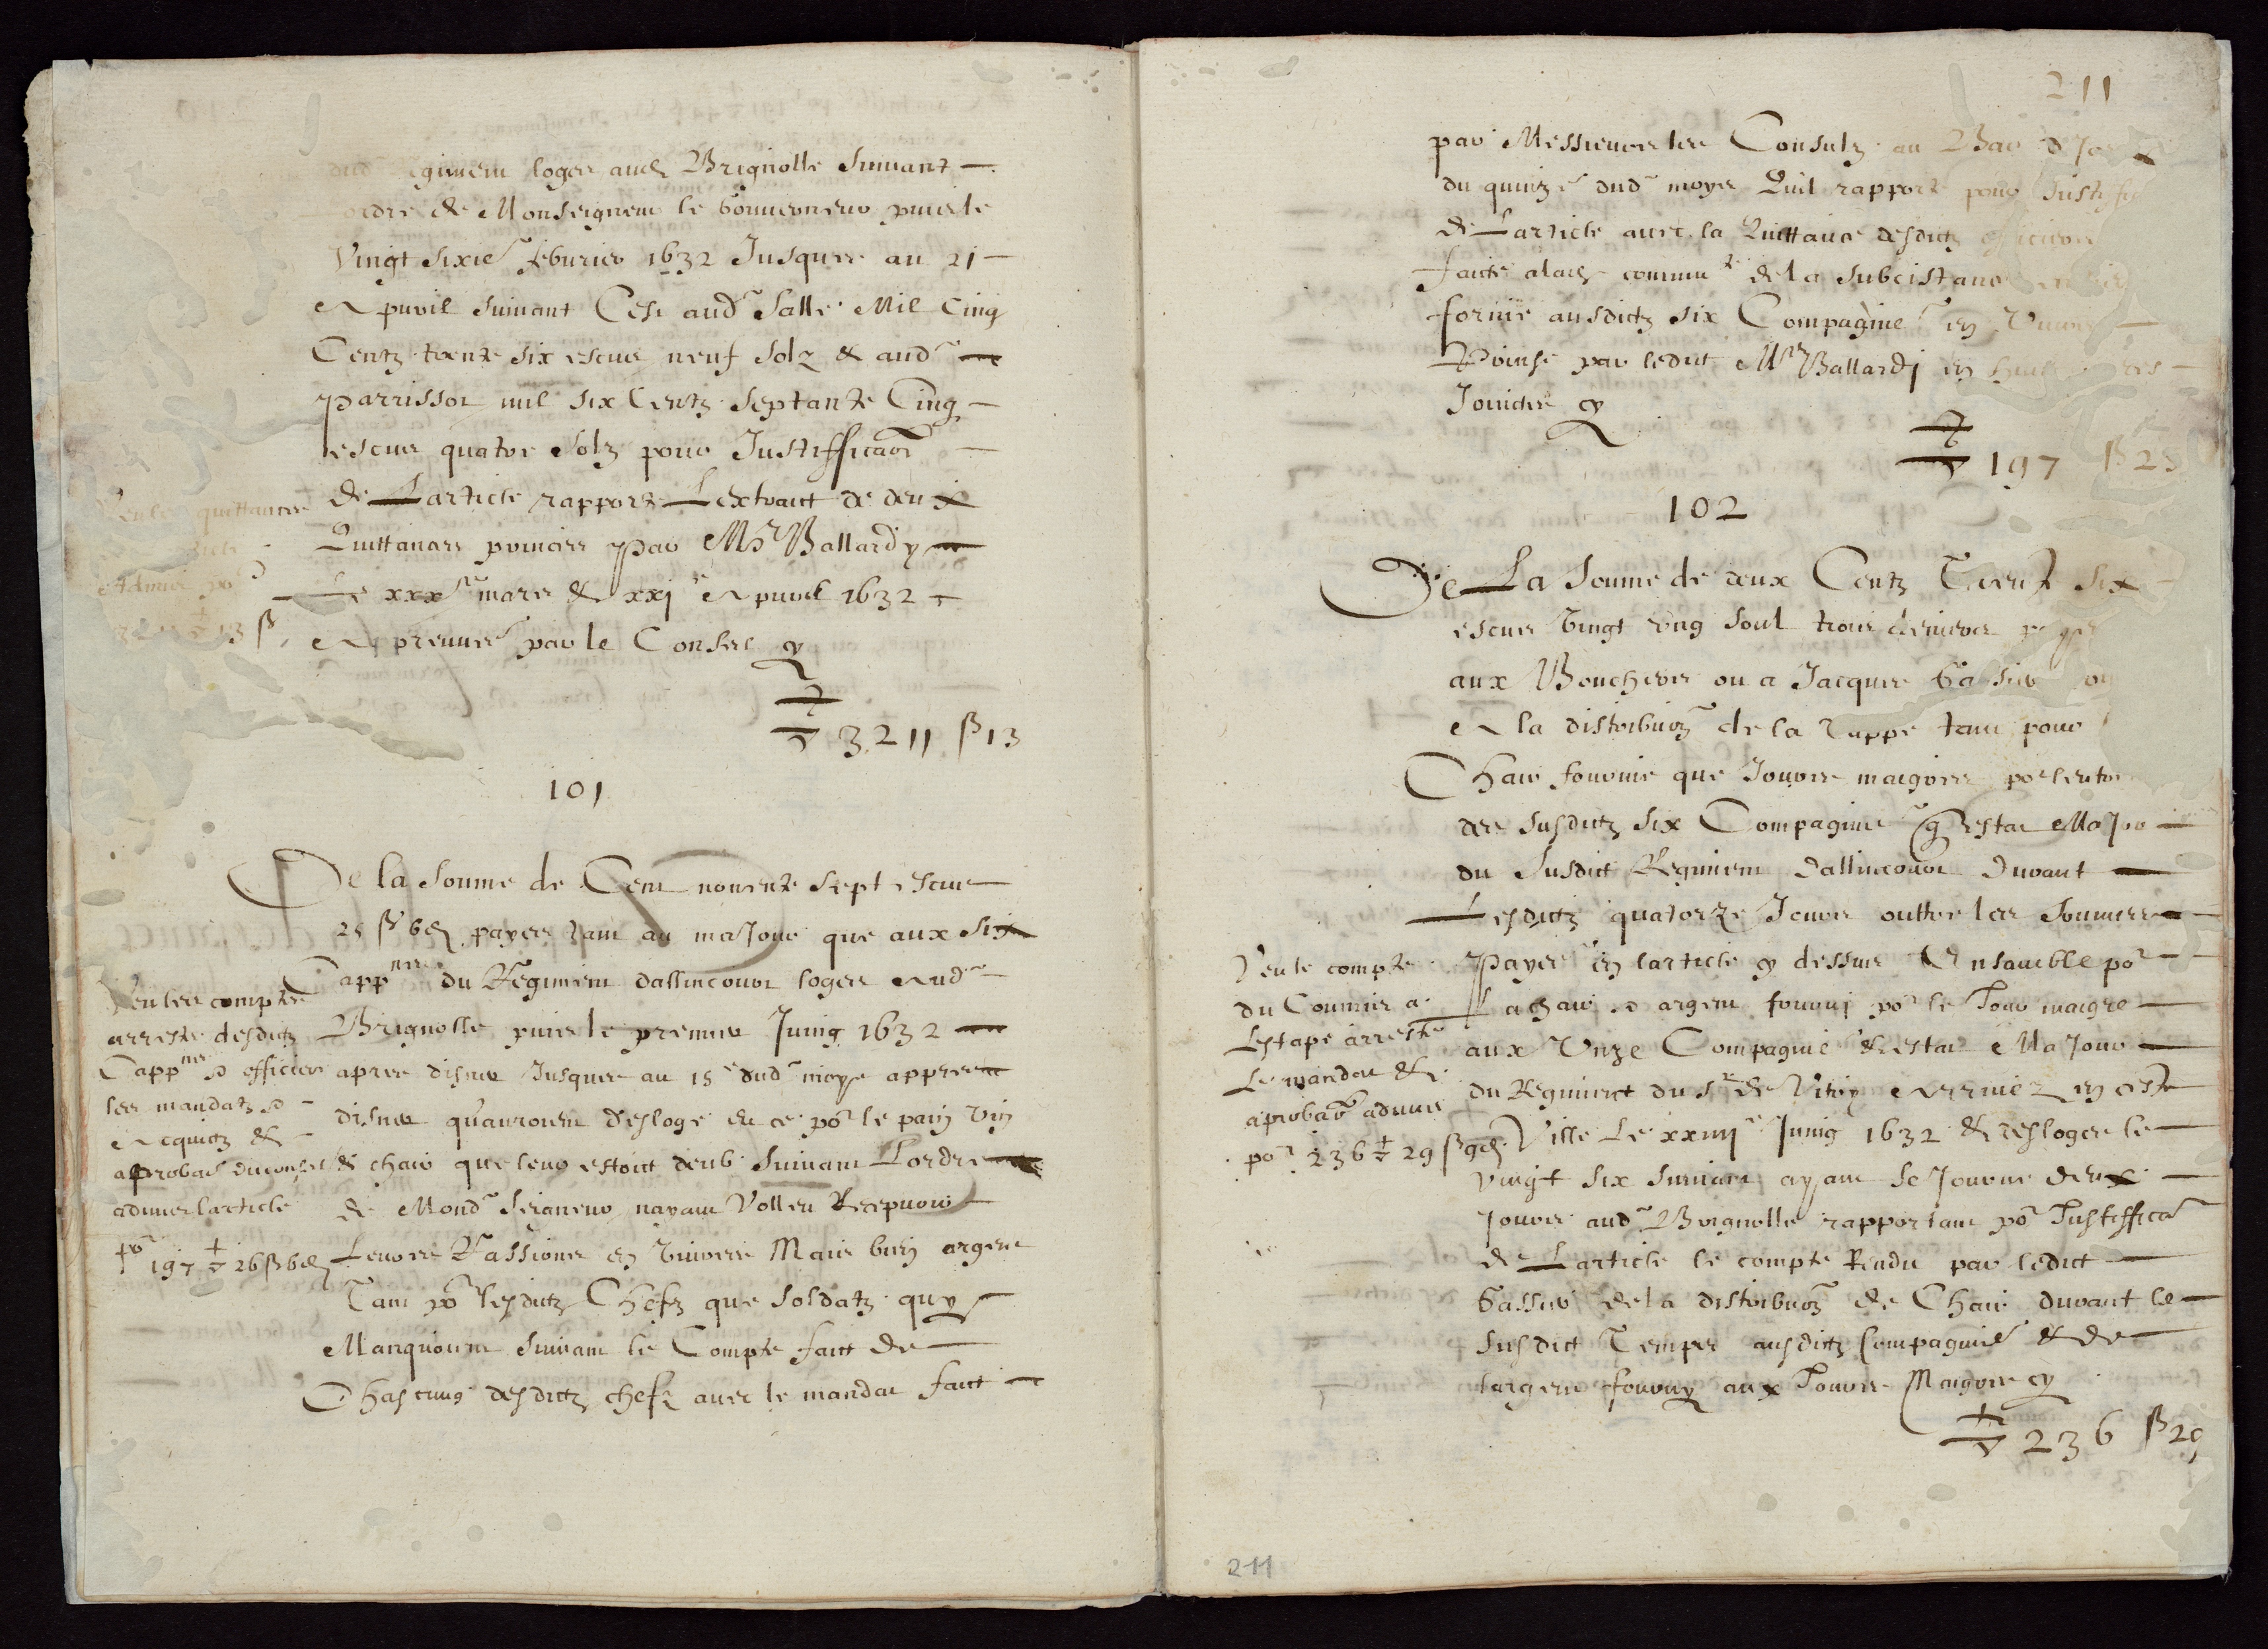 dud regiment loger aud Brignolle suivant
ordre de Monseigneur le Gouverneur puis le
Vingt sixie febvrier 1632 Jusques au 21
Apvril suivant Cest aud Salle Mil Cinq
Centz trente six escus neuf solz & aud
parrissot mil six Centz septante Cinq
escus quatre solz pour Justifficaon
de Larticle rapporte Lextraict de deux
Quittances prinses par Mr Ballardy
Le xxxe mars & xxje Apvril 1632
Appreuve par le Conseil cy
3211 ß 13
Veu les quittances
Admis po
3211 13 ß
101
De la somme de Cent nonente sept escus
25 ß 6d payes tant au majour que aux six
Cappnes du Regiment dallincourt loges aud
Brignolle puis le premier Juing 1632
apres disner Jusques au 15e dud moys appres
disner qu'auroient desloge & ce po le pain vin
& chair que leur estoit deub suivant Lordre
de Mond Seigneur nayant Volleu Recepvoir
Leurs Rassions en vivres Mais bien argent
Tant po lesditz Chefz que soldatz quy
Manquoint suivant le Compte faict de
Chascung desditz chefz avec le mandat faict
Veu les comptes
arrestes desditz
Cappnes & officiers
les mandatz &
Acquitz &
aprobaon du conseil
admis larticle
po 197 26 ß 6d
211
par Messieurs les Consulz au
du quinze dud moys Quil rapporte pour Justiffi
de Larticle avec la Quittance desditz officiers
faicte a la commu de la subcistance
fornie ausditz six Compagnie en Vivres
prinse par ledit Mr Ballardj en
Joinctes cy
197 ß 25
102
De La somme de deux Centz Trente six
escus vingt ung soul trois deniers payes
aux Bouchers ou a Jacques Gassier
A la distribuon de la tappe tant pour
Chair fournie que Jours maigres po lentre
des susditz six Compagnie & estat Major
du susdict Regiment Dallincourt durant
Lesditz quatorze Jours oultre les sommes
Payes en larticle cy dessus Ensamble po
La chair & argent fourni po le Jour maigre
aux Unze Compagnie & estat Majour
du Regiment du Sr de Vitry Arrive en ceste
Ville Le xxiiije Juing 1632 & desloges le
vingt six suivant ayant sejourne deux
Jours aud Brignolle rapportant po Justiffica
de Larticle le compte Rendu par ledict
Gassier de la distribuon de Chair durant le
susdict Temps ausditz Compagnie & de
largent fourny aux Jours Maigres cy
236 ß 29
Veu le compte
du Commis a
Lestape arreste
Le mandat &
aprobaon admis
po 236 29 ß 9d
211